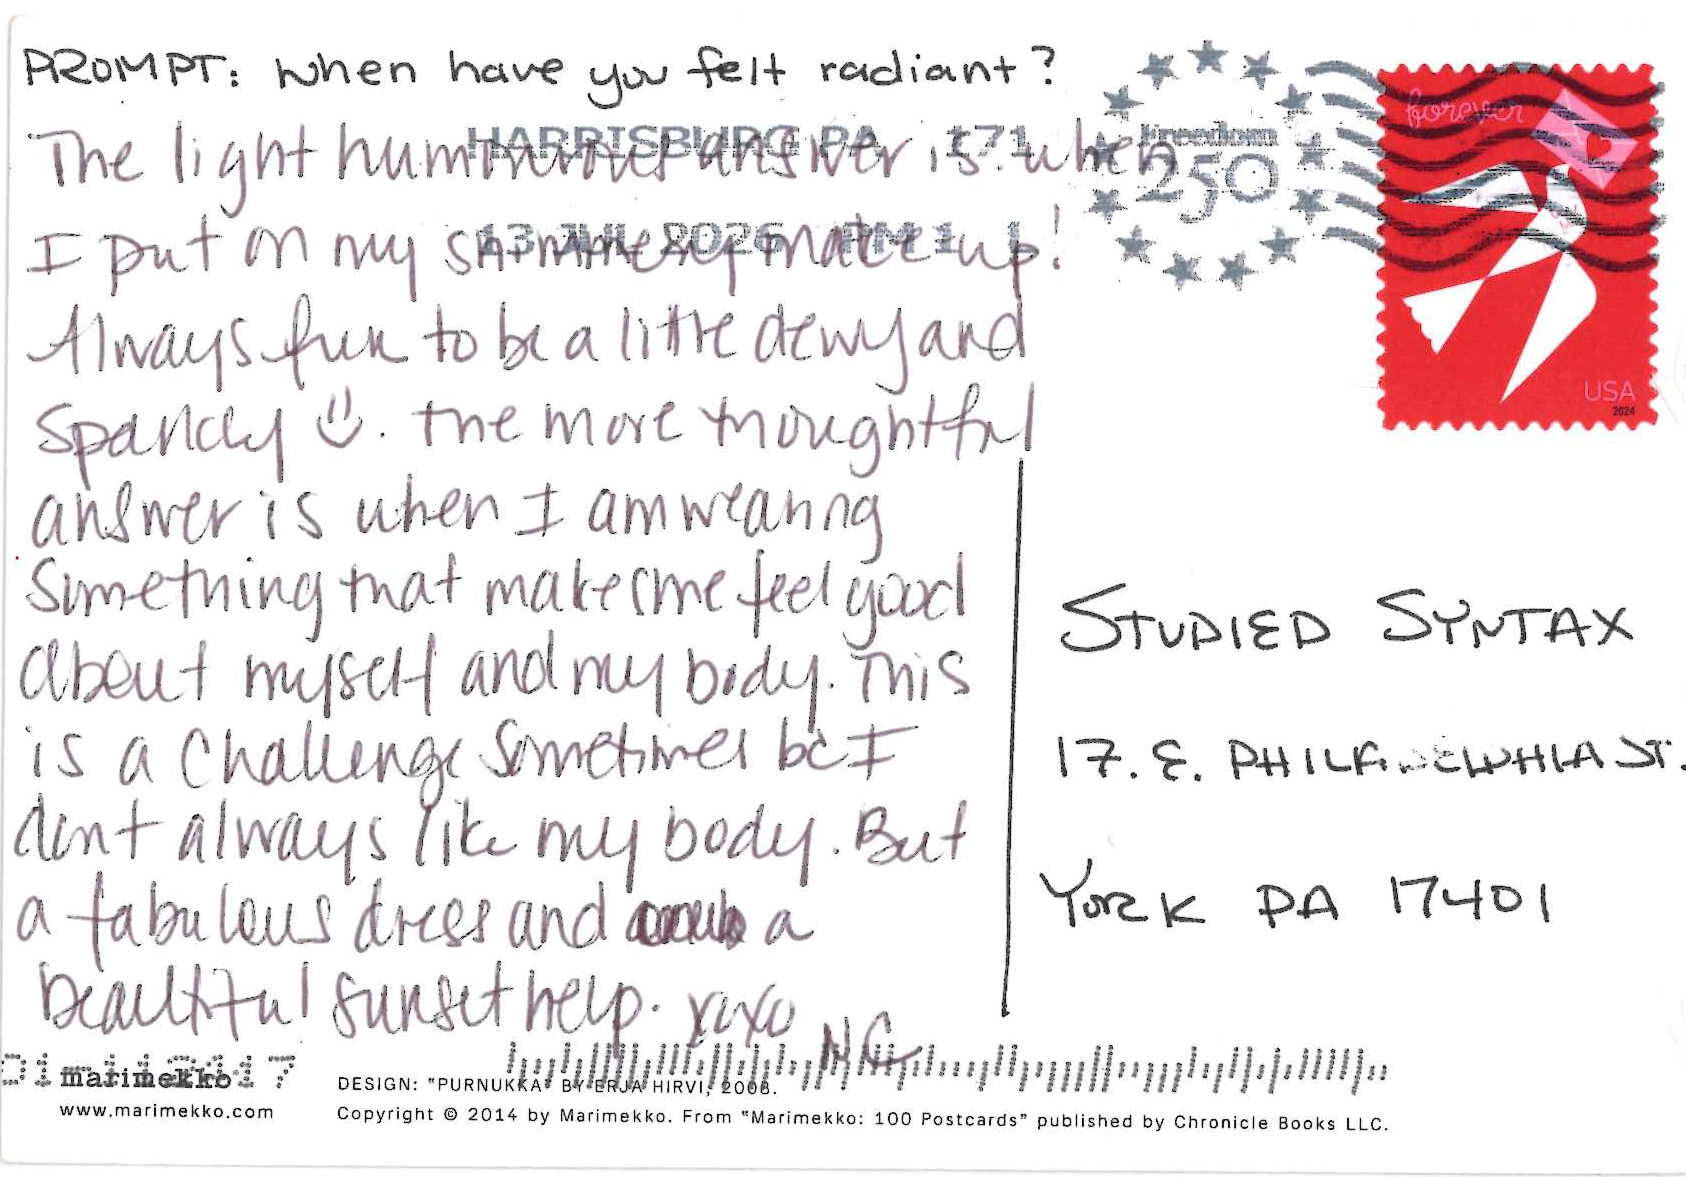 PROMPT: when have you felt radiant?
The light hummorous answer is when
I put on my shimmery make up!
Always fun to be a little dewy and
sparkly. The more thoughtful
answer is when I am wearing
something that makes me feel good
about myself and my body. This
is a challenge sometimes bc I
dont always like my body. But
a fabulous dress and a
beautiful sunset help. xoxo
NC
HARRISBURG PA 171
13 JUL 2026 PM 1 L
Freedom
250
forever
USA
2024
STUDIED SYNTAX
17. E. PHILADELPHIA ST.
YORK PA 17401
marimekko
www.marimekko.com
DESIGN: "PURNUKKA" BY ERJA HIRVI, 2008.
Copyright © 2014 by Marimekko. From "Marimekko: 100 Postcards" published by Chronicle Books LLC.